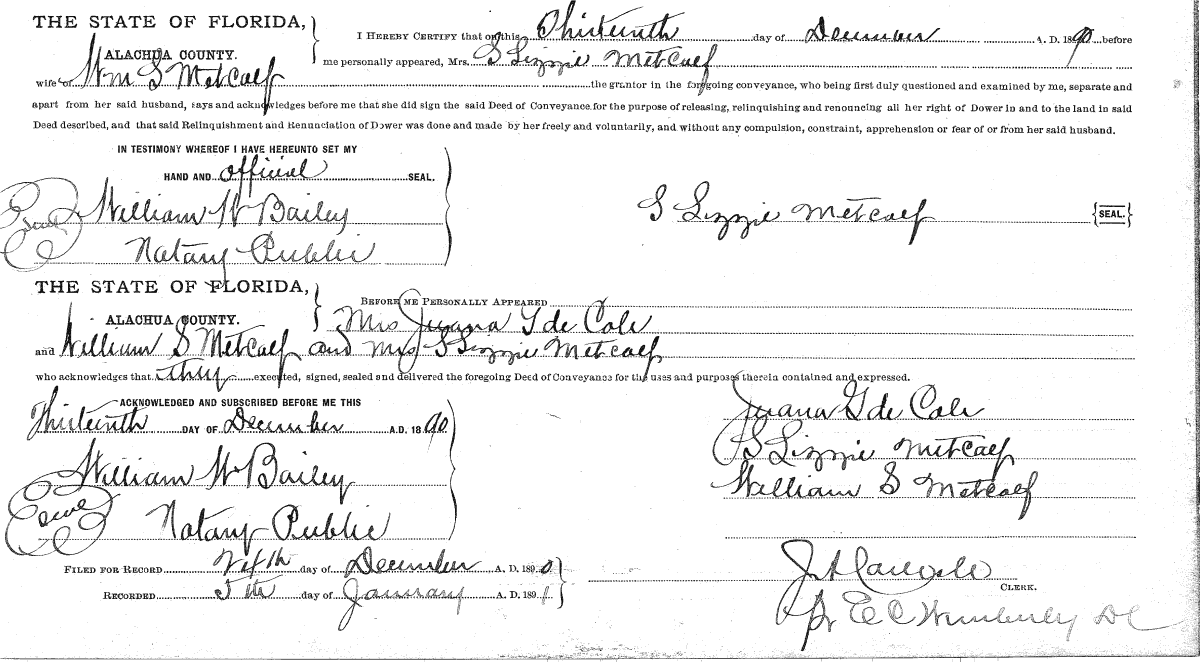 THE STATE OF FLORIDA,
ALACHUA COUNTY.
I HEREBY CERTIFY that on this Thirteenth day of December A. D. 1890 before
me personally appeared, Mrs. S Lizzie Metcalf
wife of Wm S Metcalf the grantor in the foregoing conveyance, who being first duly questioned and examined by me, separate and
apart from her said husband, says and acknowledges before me that she did sign the said Deed of Conveyance for the purpose of releasing, relinquishing and renouncing all her right of Dower in and to the land in said
Deed described, and that said Relinquishment and Renunciation of Dower was done and made by her freely and voluntarily, and without any compulsion, constraint, apprehension or fear of or from her said husband.
IN TESTIMONY WHEREOF I HAVE HEREUNTO SET MY
HAND AND official SEAL.
Seal William W Bailey
Notary Public
S Lizzie Metcalf {SEAL.}
THE STATE OF FLORIDA,
ALACHUA COUNTY.
BEFORE ME PERSONALLY APPEARED
Mrs Juana G de Cole
and William S Metcalf and Mrs S Lizzie Metcalf
who acknowledges that they executed, signed, sealed and delivered the foregoing Deed of Conveyance for the uses and purposes therein contained and expressed.
ACKNOWLEDGED AND SUBSCRIBED BEFORE ME THIS
Thirteenth DAY OF December A.D. 1890
William W Bailey
Seal
Notary Public
Juana G de Cole
S Lizzie Metcalf
William S Metcalf
FILED FOR RECORD day of December A. D. 1890
RECORDED 5th day of January A. D. 1891
CLERK.
E C Wimberly DC